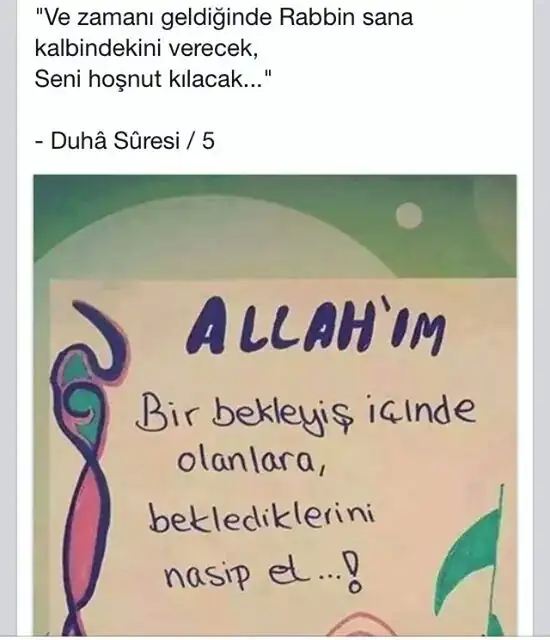 "Ve zamanı geldiğinde Rabbin sana
kalbindekini verecek,
Seni hoşnut kılacak..."
- Duhâ Sûresi / 5
ALLAH'IM
Bir bekleyiş içinde
olanlara,
beklediklerini
nasip et...!